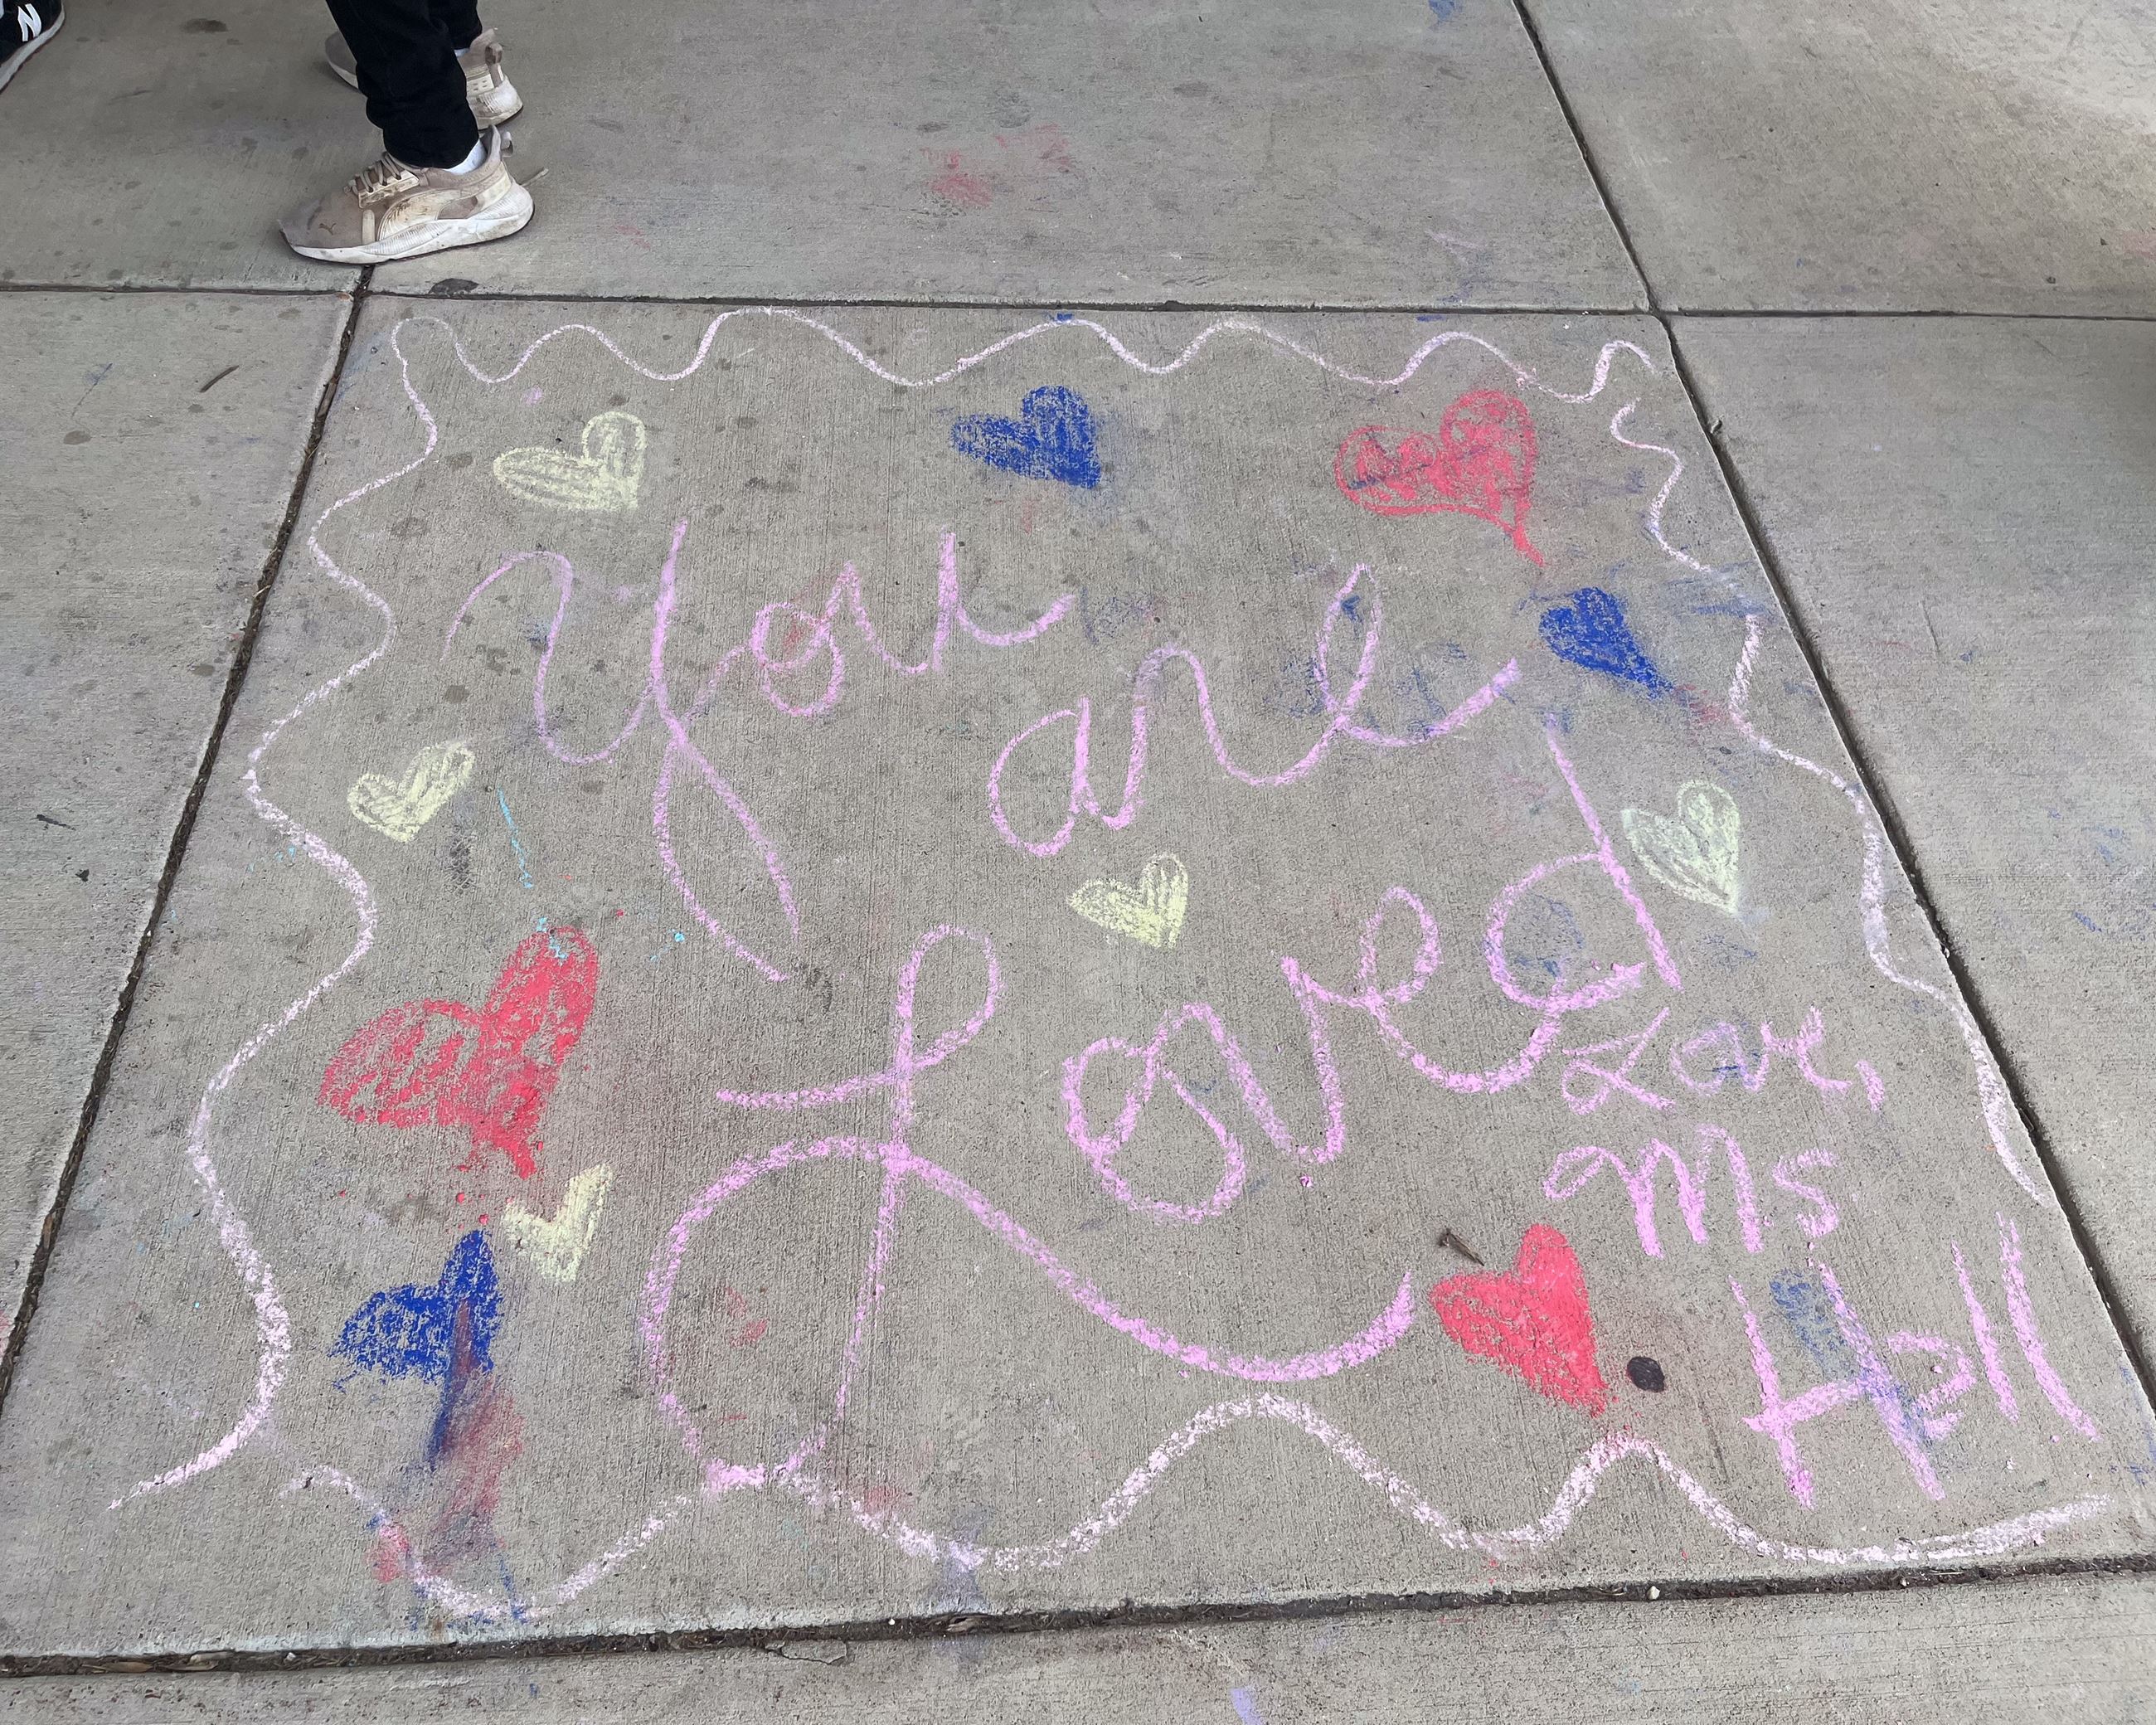 You are
Loved
Love,
Ms
Hall